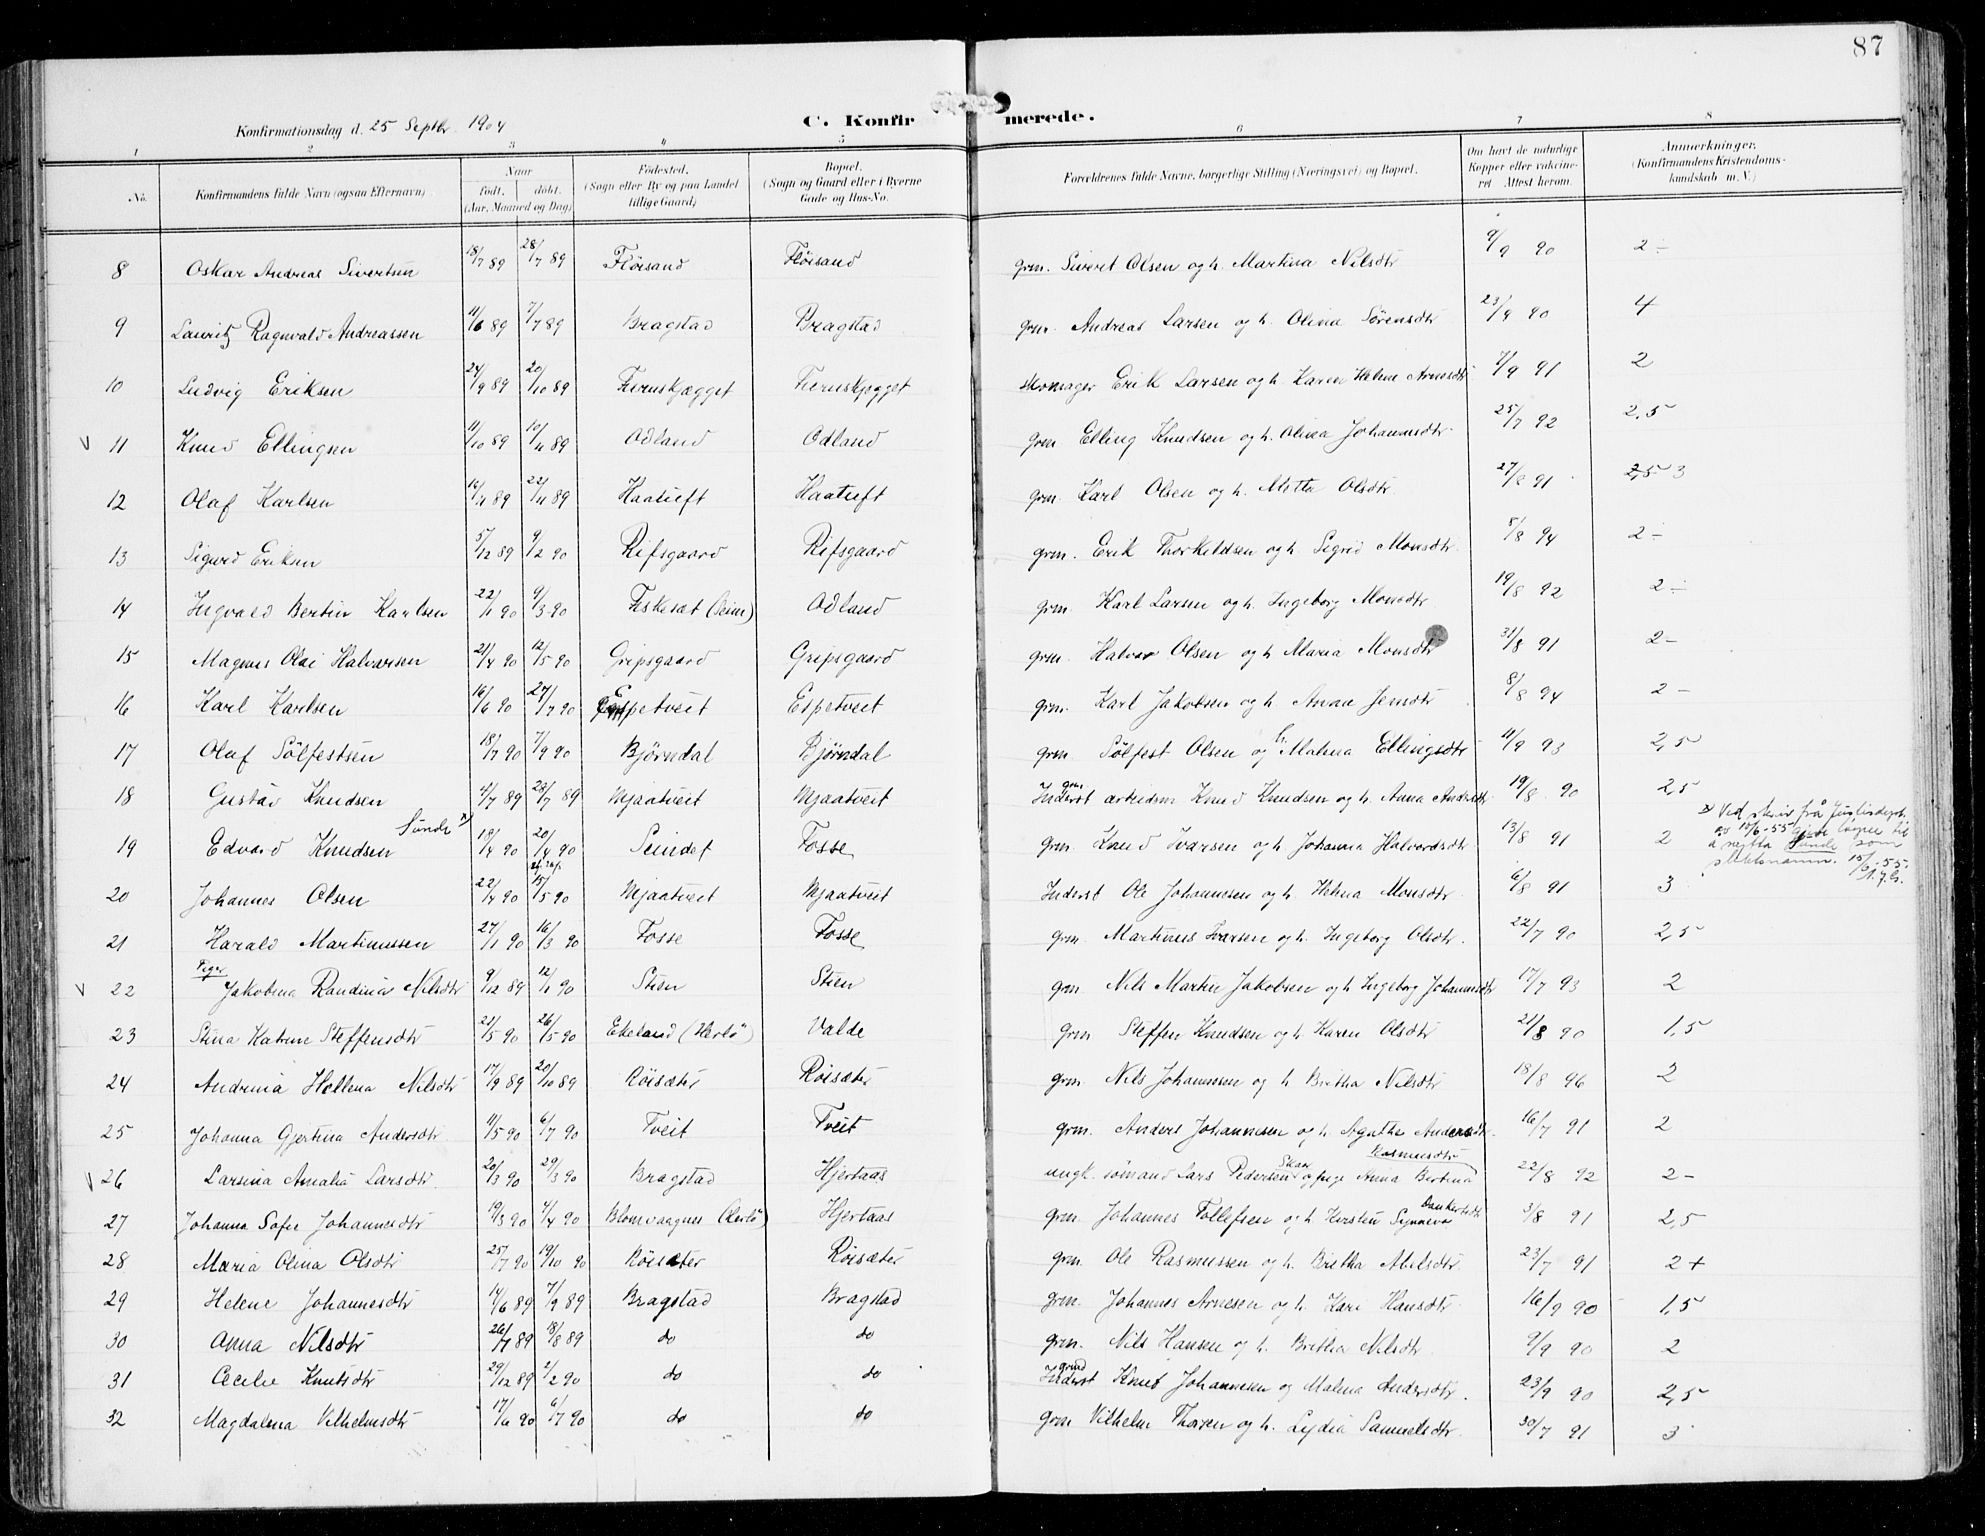 87
Konfirmationsdag d. 25 Septbr. 1904
C. Konfirmerede.
1 2 3 4 5 6 7 8
No. Konfirmandens fulde Navn (ogsaa Efternavn) Naar født, døbt. (Aar, Maaned og Dag) Fødested. (Sogn eller By og paa Landet tillige Gaard) Bopæl. (Sogn og Gaard eller i Byerne Gade og Hus-No. Forældrenes fulde Navne, borgerlige Stilling (Næringsvei) og Bopæl. Om havt de naturlige Kopper eller vakcineret. Attest herom. Anmerkninger. (Konfirmandens Kristendomskundskab m. V.)
8 Oskar Andreas Sivertsen 18/7 89 28/7 89 Fløisand Fløisand grm. Sivert Olsen og h. Martina Nilsdtr 9/9 90 2÷
9 Lauritz Ragnvald Andreassen 11/6 89 7/7 89 Bragstad Bragstad grm. Andreas Larsen og h. Olina Sørensdtr 23/9 90 4
10 Ludvig Eriksen 24/9 89 20/10 89 Furuskjægget Furuskjægget skomager Erik Larsen og h. Karen Helene Arnesdtr 7/9 91 2
V 11 Knud Ellingsen 11/10 89 10/11 89 Odland Odland grm Elling Knudsen og h. Olina Johannesdtr 25/7 92 2,5
12 Olaf Karlsen 22/11 89 Haatuft Haatuft grm. Karl Olsen og h. Mitta Olsdtr. 91 2,5 3
13 Sigurd Eriksen 5/12 89 9/2 90 Rifsgaard Rifsgaard grm. Erik Thorkildsen og h. Sigrid Monsdtr. 8/8 94 2÷
14 Ingvald Bertin Karlsen 22/1 90 9/3 90 Fiskesæt (Seim) Odland grm Karl Larsen og h. Ingeborg Monsdtr 19/8 92 2÷
15 Magnus Olai Halvorsen 21/4 90 12/5 90 Gripsgaard Gripsgaard grm. Halvor Olsen og h Maria Monsdtr 31/8 91 2-
16 Karl Karlsen 16/6 90 27/7 90 Espetveit Espetveit grm. Karl Jakobsen og h. Anna Jensdtr 8/8 94 2-
17 Olaf Sølfestsen 18/7 90 7/9 90 Bjørndal Bjørndal grm Sølfest Olsen og h. Malena Ellingsdtr 11/9 93 2,5
18 Gustav Knudsen 4/7 89 28/7 89 Mjaatveit Mjaatveit Inderst grm arbeidsm Knud Knudsen og h. Anna Andersdtr 19/8 90 2,5
19 Edvard Knudsen Sunde x) 18/4 90 20/4 90 Seindet Fosse grm. Knud Ivarsen og h Johanna Halvordsdtr 13/8 91 2 x) Ved skriv frå Justisdept. av 10/6-55 løyve til å nytta Sunde som slektsnamn. 15/6-55.
20 Johannes Olsen 22/4 90 15/5 90 Mjaatveit Mjaatveit Inderst Ole Johannessen og h. Helena Monsdtr 6/8 91 3
21 Harald Martinussen 27/1 90 16/3 90 Fosse Fosse grm. Martinus Ivarsen og h. Ingeborg Olsdtr. 22/7 90 2,5
Piger
V 22 Jakobina Randina Nilsdtr 9/12 89 12/1 90 Stien Stien grm Nils Martin Jakobsen og h Ingeborg Johannesdtr 17/7 93 2
23 Stina Katrine Steffensdtr 21/5 90 26/5 90 Ekeland (Herlø) Valde grm Steffen Knudsen og h: Karen Olsdtr 21/8 90 1,5
24 Andrina Hellena Nilsdtr 17/9 89 20/10 89 Røisæter Røisæter grm. Nils Johannessen og h Britha Nilsdtr 18/8 96 2
25 Johanna Gjertina Andersdtr 11/5 90 6/7 90 Tveit Tveit grm. Anders Johannesen og h. Agathe Andersdtr. 16/7 91 2
V 26 Larsina Amalia Larsdtr. 20/3 90 29/3 90 Bragstad Hjertaas ungk. sømand Lars Pedersen Skaar og pige Anna Bertina Rasmusdtr 22/8 92 2-
27 Johanna Sofie Johannesdtr 19/3 90 7/4 90 Blomvaagnes (Herlø) Hjertaas grm. Johannes Tollefsen og h Kirsten Synneva Dankertsdtr 3/8 91 2,5
28 Maria Olina Olsdtr 25/7 90 19/10 90 Røisæter Røisæter grm. Ole Rasmussen og h. Britha Nilsdtr. 23/7 91 2+
29 Helene Johannesdtr 14/6 89 7/9 89 Bragstad Bragstad grm. Johannes Arnesen og h. Kari Hansdtr. 16/9 90 1,5
30 Anna Nilsdtr 26/7 89 18/8 89 do do grm. Nils Hansen og h. Britha Nilsdtr. 9/9 90 2
31 Cecilie Knutsdtr 29/12 89 2/2 90 do do Inderst Knut Johannesen og Malena Andersdtr. 23/9 90 2,5
32 Magdalena Vilhelmsdtr 17/6 90 6/7 90 do do grm Vilhelm Thorsen og h. Lydia Samuelsdtr. 30/7 91 3